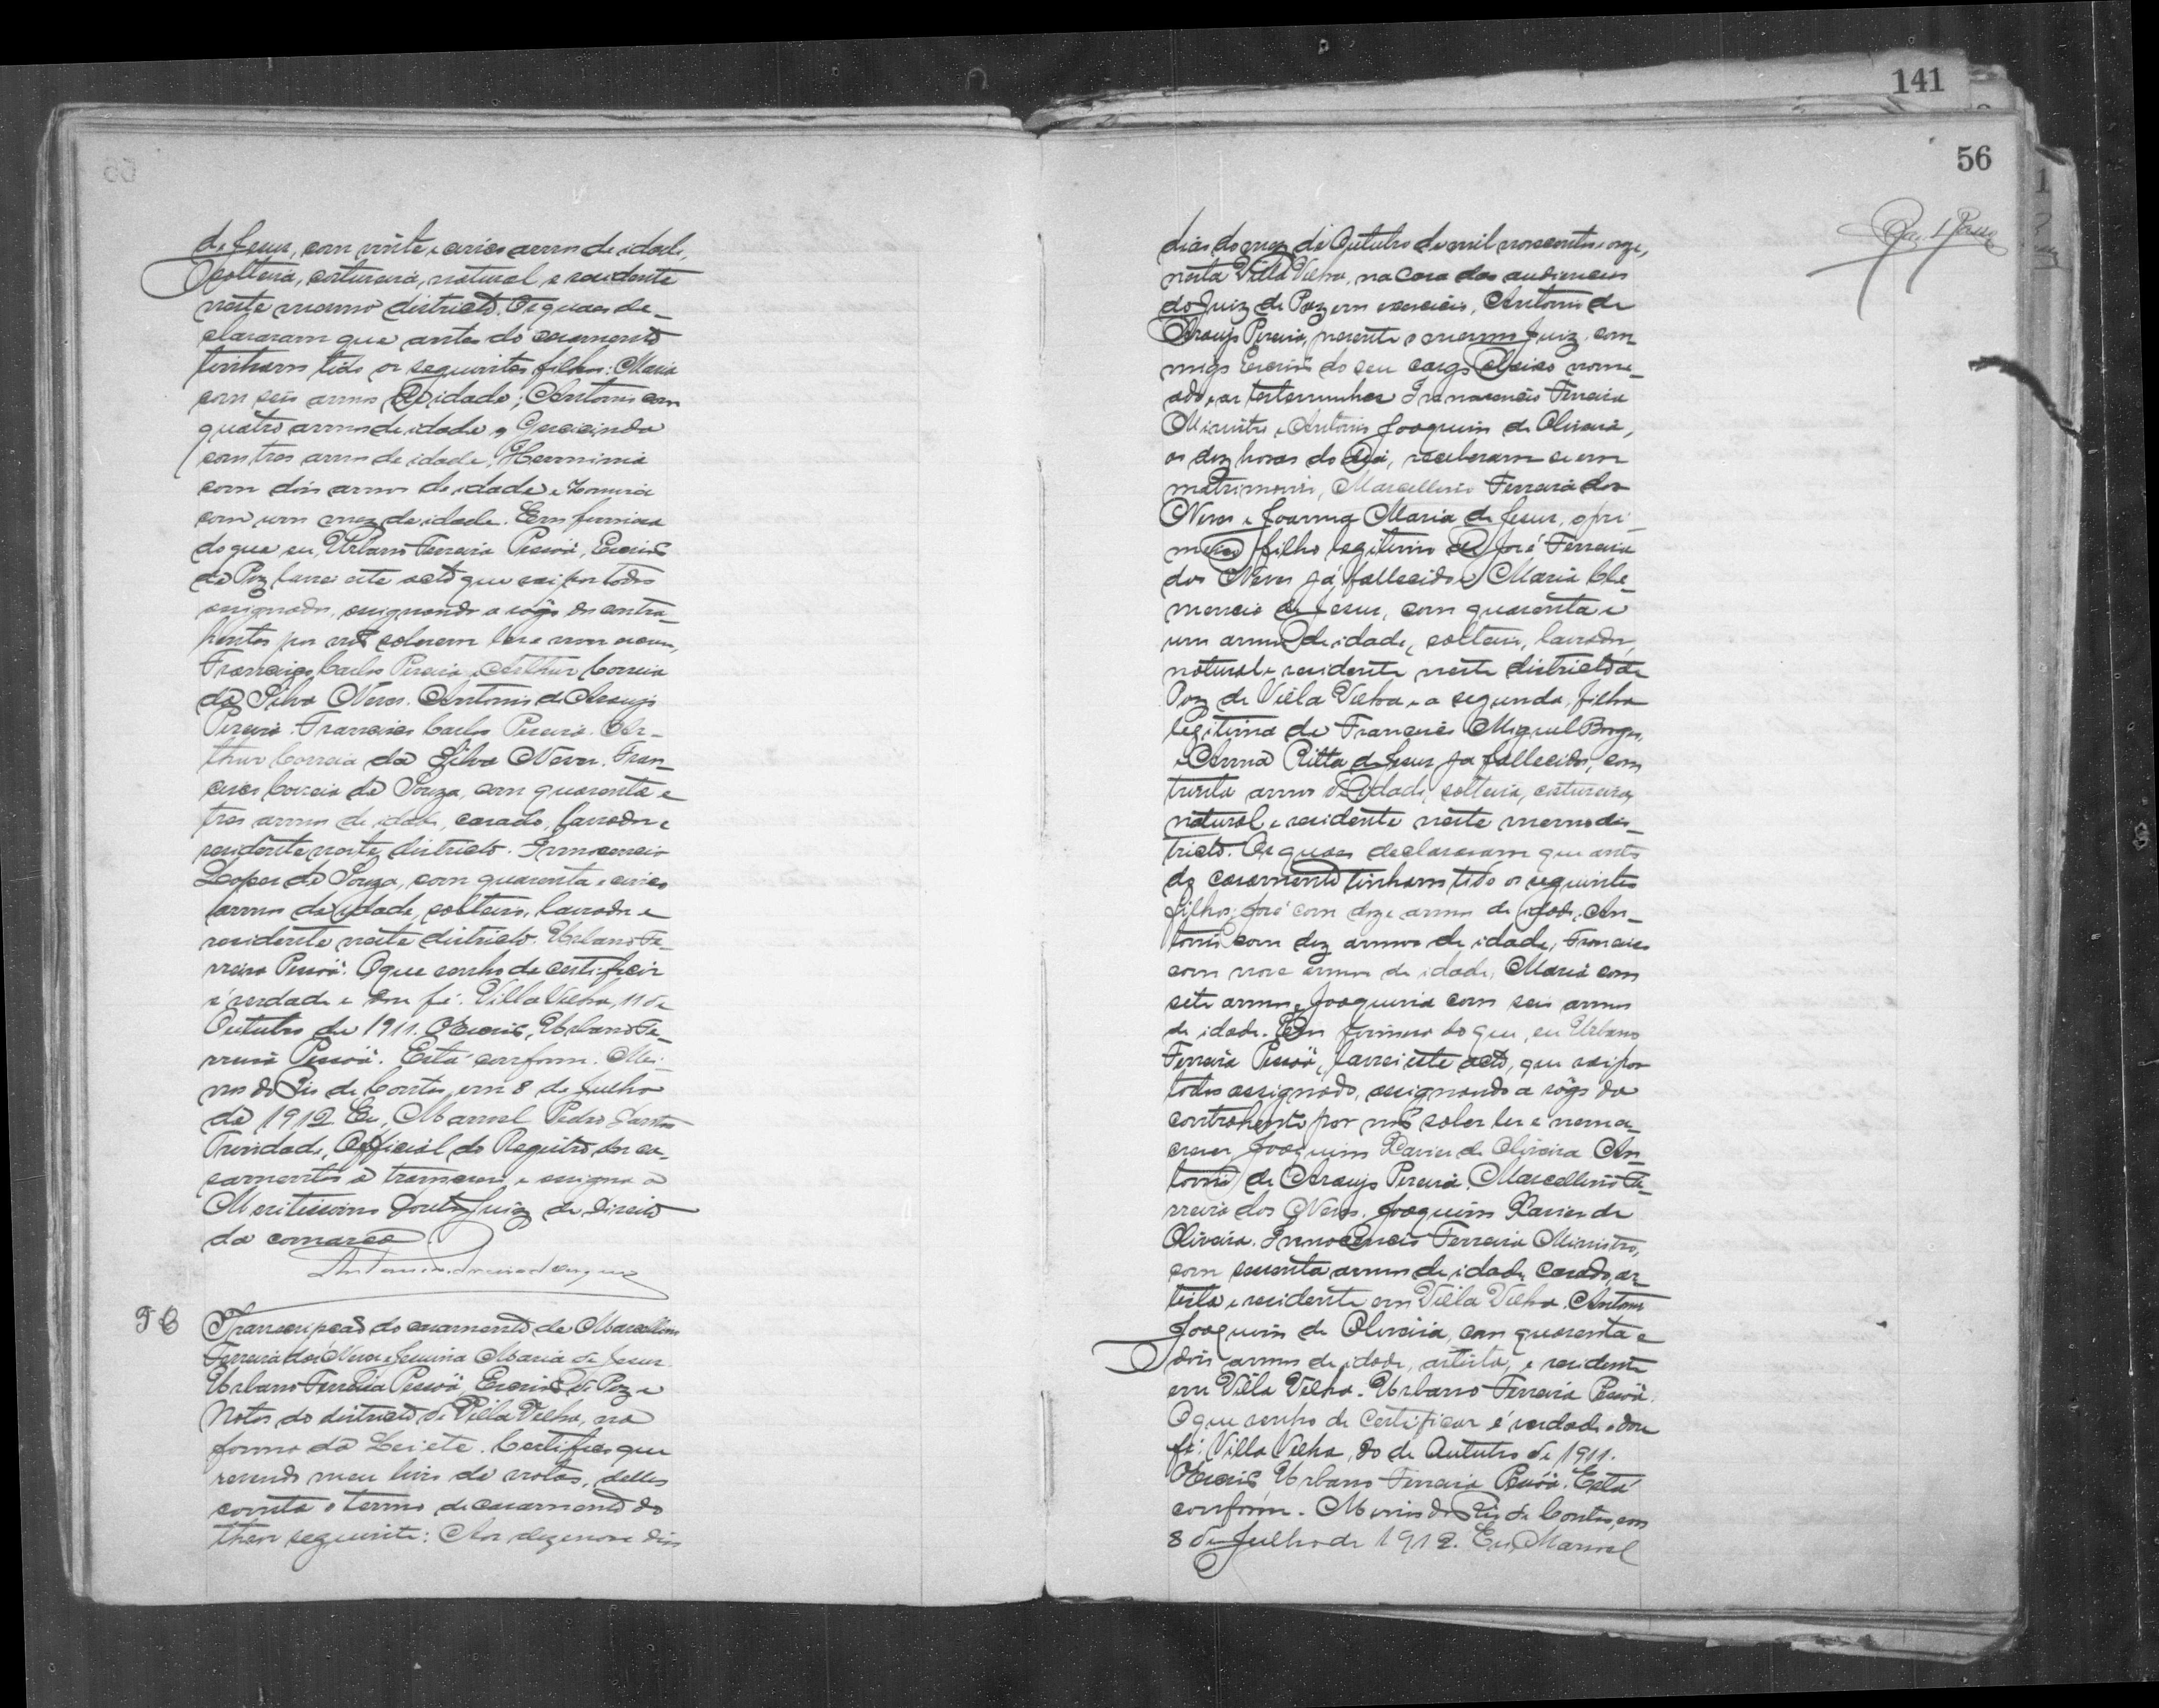 de Jesus, com vinte e cinco annos de idade,
solteira, costureira, natural e residente
neste mesmo districto. Os quaes de-
clararam que antes do casamento
tinham tido os seguintes filhos: Maria
com seis annos de idade; Antonio com
quatro annos de idade, Gracinda
com tres annos de idade, Herminia
com dois annos de idade e
com um mez de idade. Em firmeza
do que eu, Urbano Ferreira Pessôa, Escrivão
de Paz lavrei este acto que vai por todos
assignado, assignando a rôgo dos contra-
hentes por não saberem ler e nem escrever,
Francisco Carlos Pereira e Arthur Correia
da Silva Neves. Antonio de Araujo
Pereira. Francisco Carlos Pereira. Ar-
thur Correia da Silva Neves. Fran-
cisco Correia de Souza, com quarenta e
tres annos de idade, casado, lavrador e
residente neste districto. Innocencio
Lopes de Souza, com quarenta e cinco
annos de idade, solteiro, lavrador e
residente neste districto. Urbano Fe-
rreira Pessôa. O que venho de certificar
é verdade e dou fé. Villa Velha, 11 de
Outubro de 1911. O Escrivão, Urbano Fe-
rreira Pessôa. Está conforme. Mi-
nas do Rio de Contas, em 8 de Julho
de 1912. Eu, Manoel Pedro Santos
Trindade, Official do Registro dos ca-
samentos a transcrevi e assigna o
Meritissimo Doutor Juiz de Direito
da comarca.
Transcripção do casamento de Marcellino
Ferreira das Neves e Joanna Maria de Jesus.
Urbano Ferreira Pessôa, Escrivão de Paz e
Notas do districto de Villa Velha, na
forma da Lei, etc. Certifico que
revendo meu livro de notas, delles
consta o termo de casamento do
theor seguinte: Aos dezenove dias
141
56
dias do mez de Outubro de mil novecentos e onze,
nesta Villa Velha, na casa das audiencias
do Juiz de Paz em exercicio, Antonio de
Araujo Pereira, presente o mesmo Juiz, com
migo Escrivão do seu cargo abaixo nome-
ado, e as testemunhas Innocencio Ferreira
Ministro e Antonio Joaquim de Oliveira,
as dez horas do dia, receberam-se em
matrimonio, Marcellino Ferreira das
Neves e Joanna Maria de Jesus, o pri-
meiro filho legitimo de José Ferreira
das Neves já fallecido e Maria Cle-
mencia de Jesus, com quarenta e
um annos de idade, solteiro, lavrador,
natural e residente neste districto de
Paz de Villa Velha e a segunda, filha
legitima de Francisco Miguel Borges,
e Anna Ritta de Jesus já fallecidos, com
trinta annos de idade, solteira, costureira,
natural e residente neste mesmo dis-
tricto. Os quaes declararam que antes
do casamento tinham tido os seguintes
filhos: José com doze annos de idade, An-
tonio com dez annos de idade, Francisco
com nove annos de idade, Maria com
sete annos e Joaquina com seis annos
de idade. Em firmeza do que, eu Urbano
Ferreira Pessôa, lavrei este acto, que vai por
todos assignado, assignando a rôgo da
contrahente por não saber ler e nem es-
crever Joaquim Xavier de Oliveira. An-
tonio de Araujo Pereira. Marcellino Fe-
rreira das Neves. Joaquim Xavier de
Oliveira. Innocencio Ferreira Ministro,
com sessenta annos de idade, casado, ar-
tista e residente em Villa Velha. Antonio
Joaquim de Oliveira, com quarenta e
dois annos de idade, artista, e residente
em Villa Velha. Urbano Ferreira Pessôa.
O que venho de certificar é verdade e dou
fé. Villa Velha, 20 de Outubro de 1911.
O Escrivão Urbano Ferreira Pessôa. Está
conforme. Minas do Rio de Contas, em
8 de Julho de 1912. Eu, Manoel